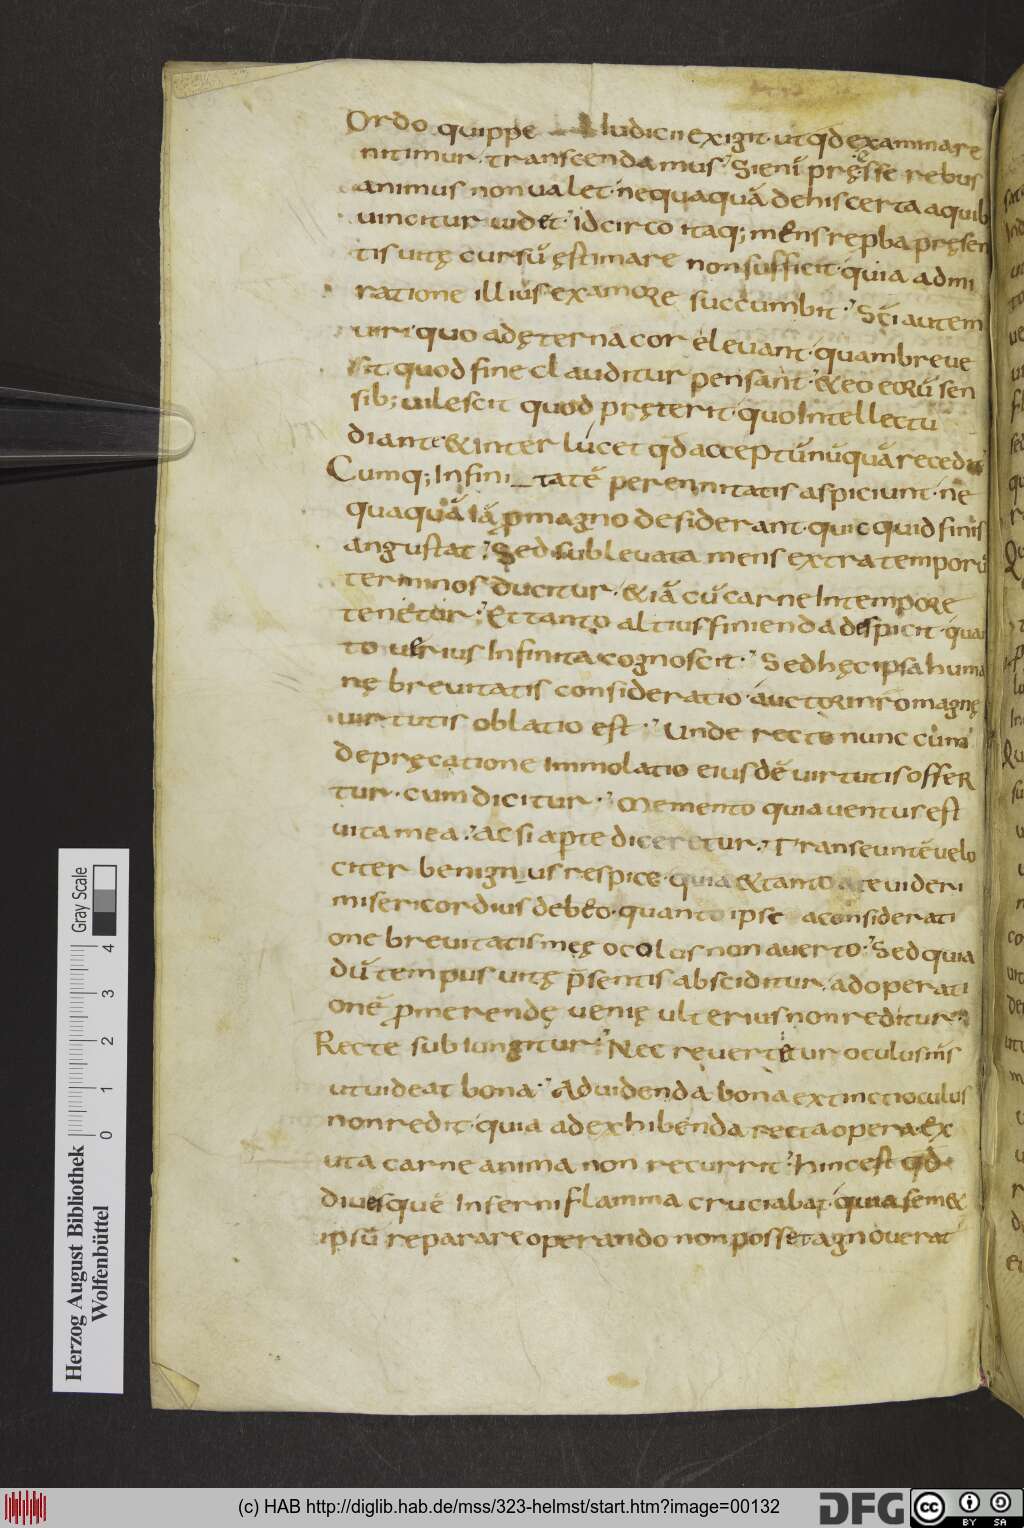 Ordo quippe iudicii exigit· ut qd examinare
nitimur· transcendamus· Si enī pręesse rebus
animus non ualet· nequaquā de his certa a quib
uincitur uidet· Idcirco itaq; mens reproba pręsen
tis uitę cursū ęstimare non sufficit· quia admi
ratione illius ex amore succumbit· Sci autem
uiri· quo ad ęterna cor eleuant· quam breue
sit quod fine clauditur pensant· & eo eorū sen
sib; uilescit quod pręterit· quo intellectu
diante & interlucet qd acceptū nūquā recedit
Cumq; infini_tatē perennitatis aspiciunt· ne
quaquā iā p magno desiderant· quicquid finis
angustat· Sed subleuata mens extra temporū
terminos ducitur· & iā cū carne in tempore
tenetur· Et tanto altius finienda despicit· quan
to uerius infinita cognoscit· Sed hęc ipsa huma
nę breuitatis consideratio· auctori nr̄o magnę
uirtutis oblatio est· Unde recte nunc cum
depręcatione immolatio eiusdē uirtutis offer
tur· cum dicitur· Memento quia uentus est
uita mea· Ac si aperte diceretur· Transeuntē uelo
citer benignius respice· quia & tanto a te uideri
misericordius debeo· quanto ipse a considerati
one breuitatis meę oculos non auerto· Sed quia
dū tempus uitę p̄sentis absciditur· ad operati
onē promerendę uenię ulterius non reditur·
Recte subiungitur· Nec reuertetur oculus ms
ut uideat bona· Ad uidenda bona extinctioculus
non redit· quia ad exhibenda recta opera· ex
uta carne anima non recurrit· hinc est qd
diuesque inferni flamma cruciabat· quia sem&
ipsū reparare operando non posset agnouerat
Gray Scale
0 1 2 3 4
Herzog August Bibliothek
Wolfenbüttel
(c) HAB http://diglib.hab.de/mss/323-helmst/start.htm?image=00132
DFG
cc BY SA